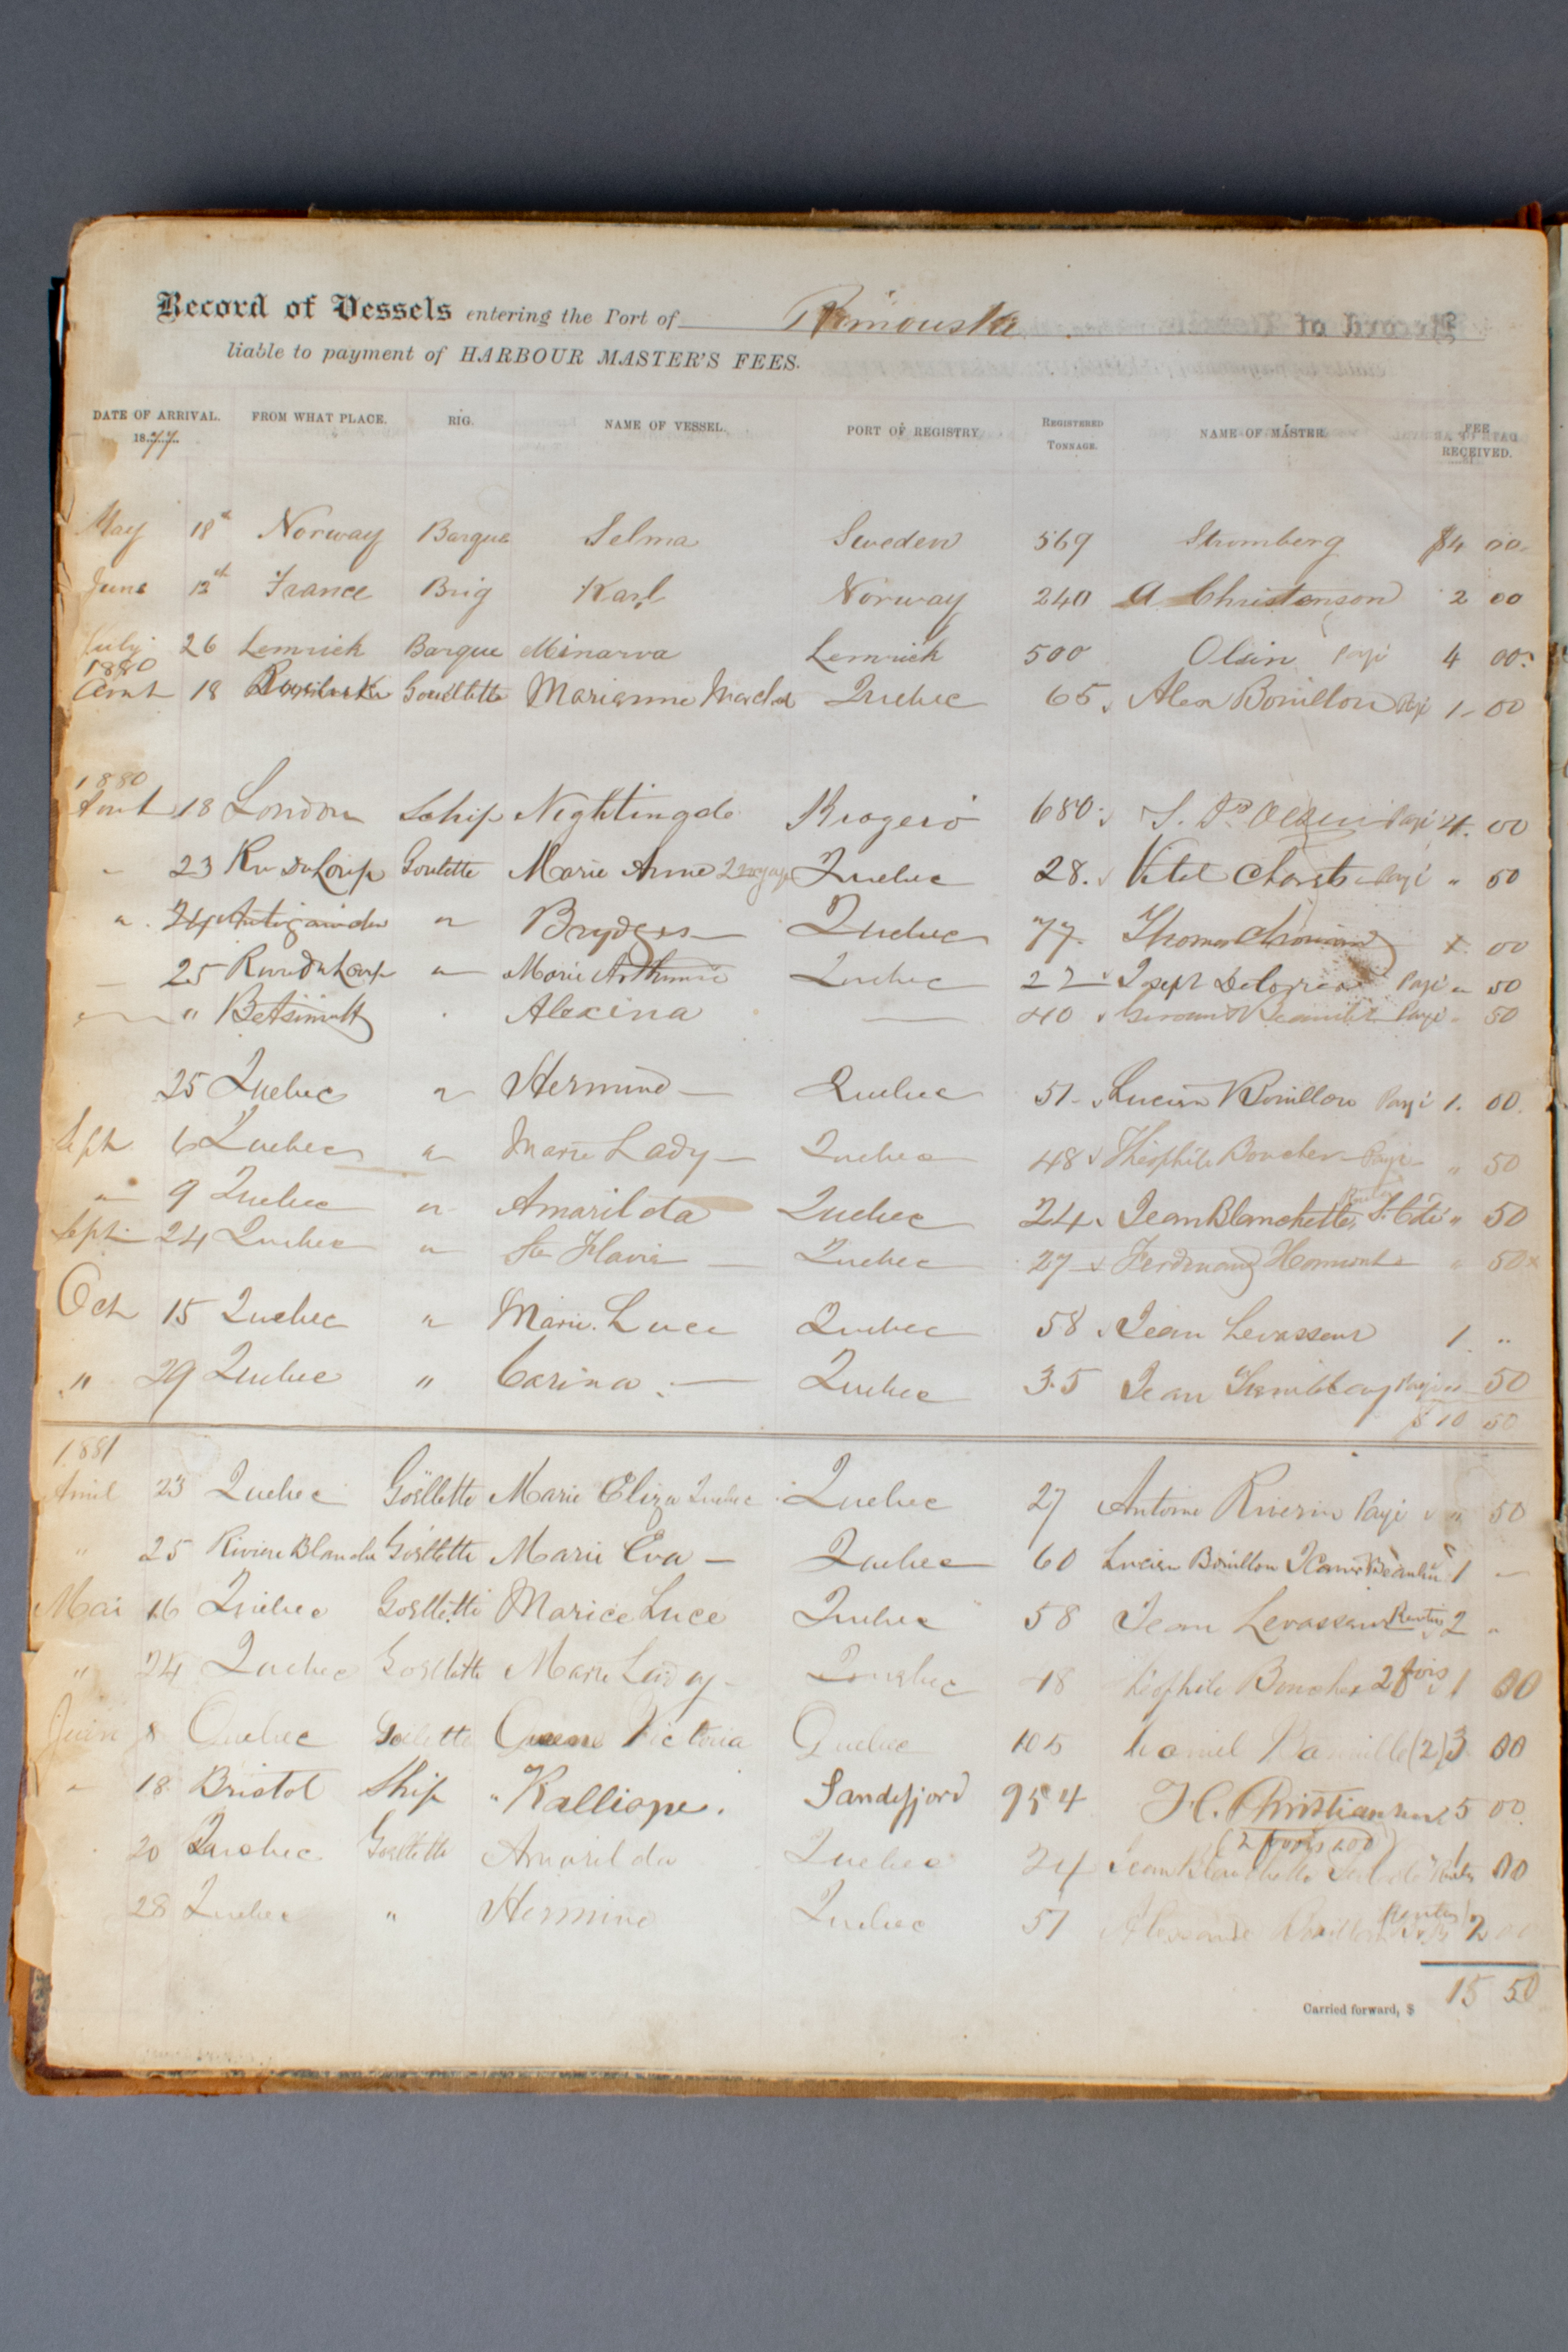 Record of Vessels entering the Port of Rimouski
liable to payment of HARBOUR MASTER'S FEES.
DATE OF ARRIVAL. FROM WHAT PLACE. RIG. NAME OF VESSEL. PORT OF REGISTRY. REGISTERED TONNAGE. NAME OF MASTER FEE RECEIVED.
1877
May 18th Norway Barque Selma Sweden 569 Stromberg $4 00
June 12th France Brig Karl Norway 240 A Christenson 2 00
July 26 Lemrick Barque Minarva Lemrick 500 Olsin Payé 4 00
1880
Aout 18 Gouellette Marianne Quebec 65 Alex Bouillon Payé 1 00
1880
Aout 18 London Schip Nightingale Krogero 680 Payé 4. 00
23 Riv Du Loup Goulette Marie Anne 2 voyage Quebec 28. Payé " 50
" 24 " Brydges Quebec 77 Thomas 00
25 " Marie Quebec 22 Joseph Payé " 50
" Betsimitt Alexina 40 Payé 50
25 Quebec " Hermine Quebec 51 Lucien Bouillon Payé 1. 00
Sept 6 Quebec " Marie Lady Quebec 48 Théophile Boucher Payé " 50
" 9 Quebec " Amarilda Quebec 24 Jean Blanchette " 50
Sept 24 Quebec " Ste Flavie Quebec 27 Ferdinand " 50 x
Oct 15 Quebec " Marie Luce Quebec 58 Jean Levasseur 1 "
" 29 Quebec " Carina Quebec 35 Jean Payé " 50
$10 50
1881
Avril 23 Quebec Goëllette Marie Eliza Quebec Quebec 27 Antoine Riverin Payé " 50
" 25 Riviere Blanche Goëllette Marie Eva Quebec 60 Lucien Bouillon 1 -
Mai 16 Quebec Goëllette Marice Luce Quebec 58 Jean Levasseur 2 "
" 24 Quebec Goëllette Marie Lady Quebec 48 Théophile Boucher 2 fois 1 00
Juin 8 Quebec Goelette Queen Victoria Quebec 105 (2) 3 00
" 18 Bristol Ship "Kalliope. Sandefjord 954 H. Christiansen 5 00
20 Quebec Goëllette Amarilda Quebec 24 Jean Blanchette 1 00
28 Quebec " Hermine Quebec 51 2 00
Carried forward, $ 15 50